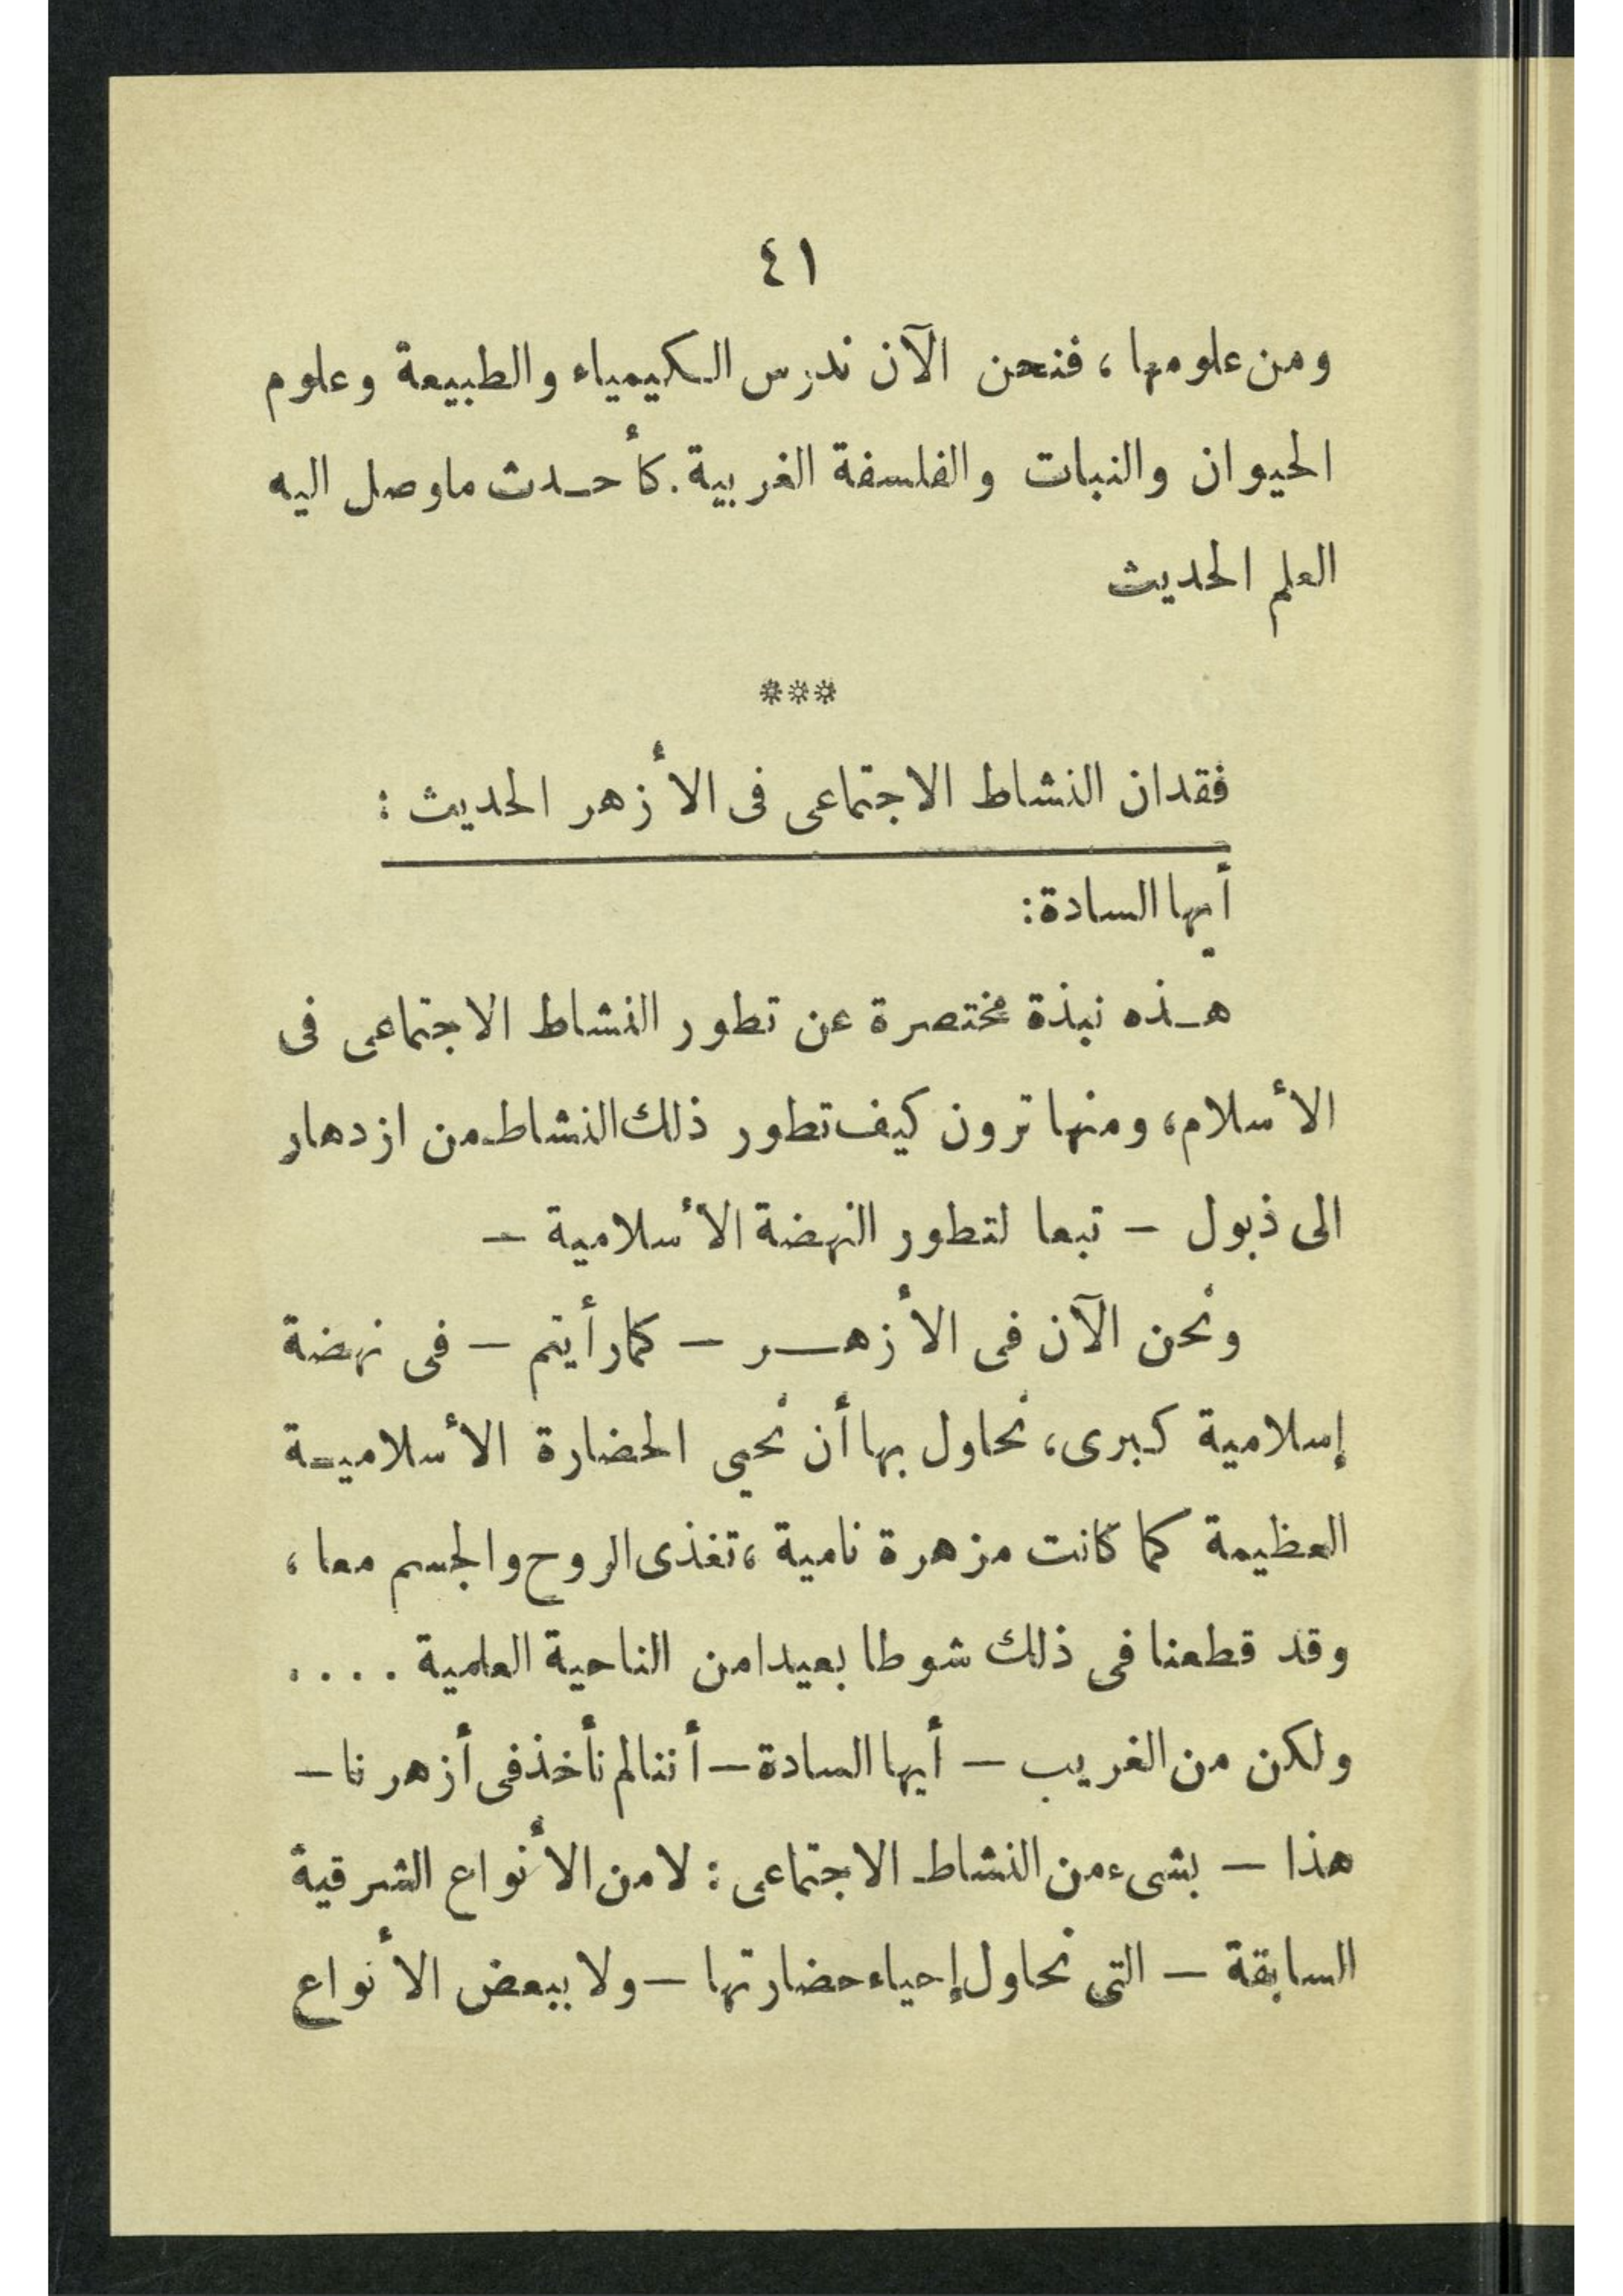 ٤١
ومن علومها ، فنحن الآن ندرس الكيمياء والطبيعة وعلوم
الحيوان والنبات والفلسفة الغربية. كأحدث ماوصل اليه
العلم الحديث
***
فقدان النشاط الاجتماعى فى الأزهر الحديث :
أيها السادة:
هذه نبذة مختصرة عن تطور النشاط الاجتماعى فى
الأسلام، ومنها ترون كيف تطور ذلك النشاط من ازدهار
الى ذبول – تبعا لتطور النهضة الأسلامية –
ونحن الآن فى الأزهر – كما رأيتم – فى نهضة
إسلامية كبرى، نحاول بها أن نحيى الحضارة الأسلامية
العظيمة كما كانت مزهرة نامية ، تغذى الروح والجسم معا ،
وقد قطعنا فى ذلك شوطا بعيدا من الناحية العلمية . . . .
ولكن من الغريب – أيها السادة – أننا لم نأخذ فى أزهرنا –
هذا – بشىء من النشاط الاجتماعى : لا من الأنواع الشرقية
السابقة – التى نحاول إحياء حضارتها – ولا ببعض الأنواع